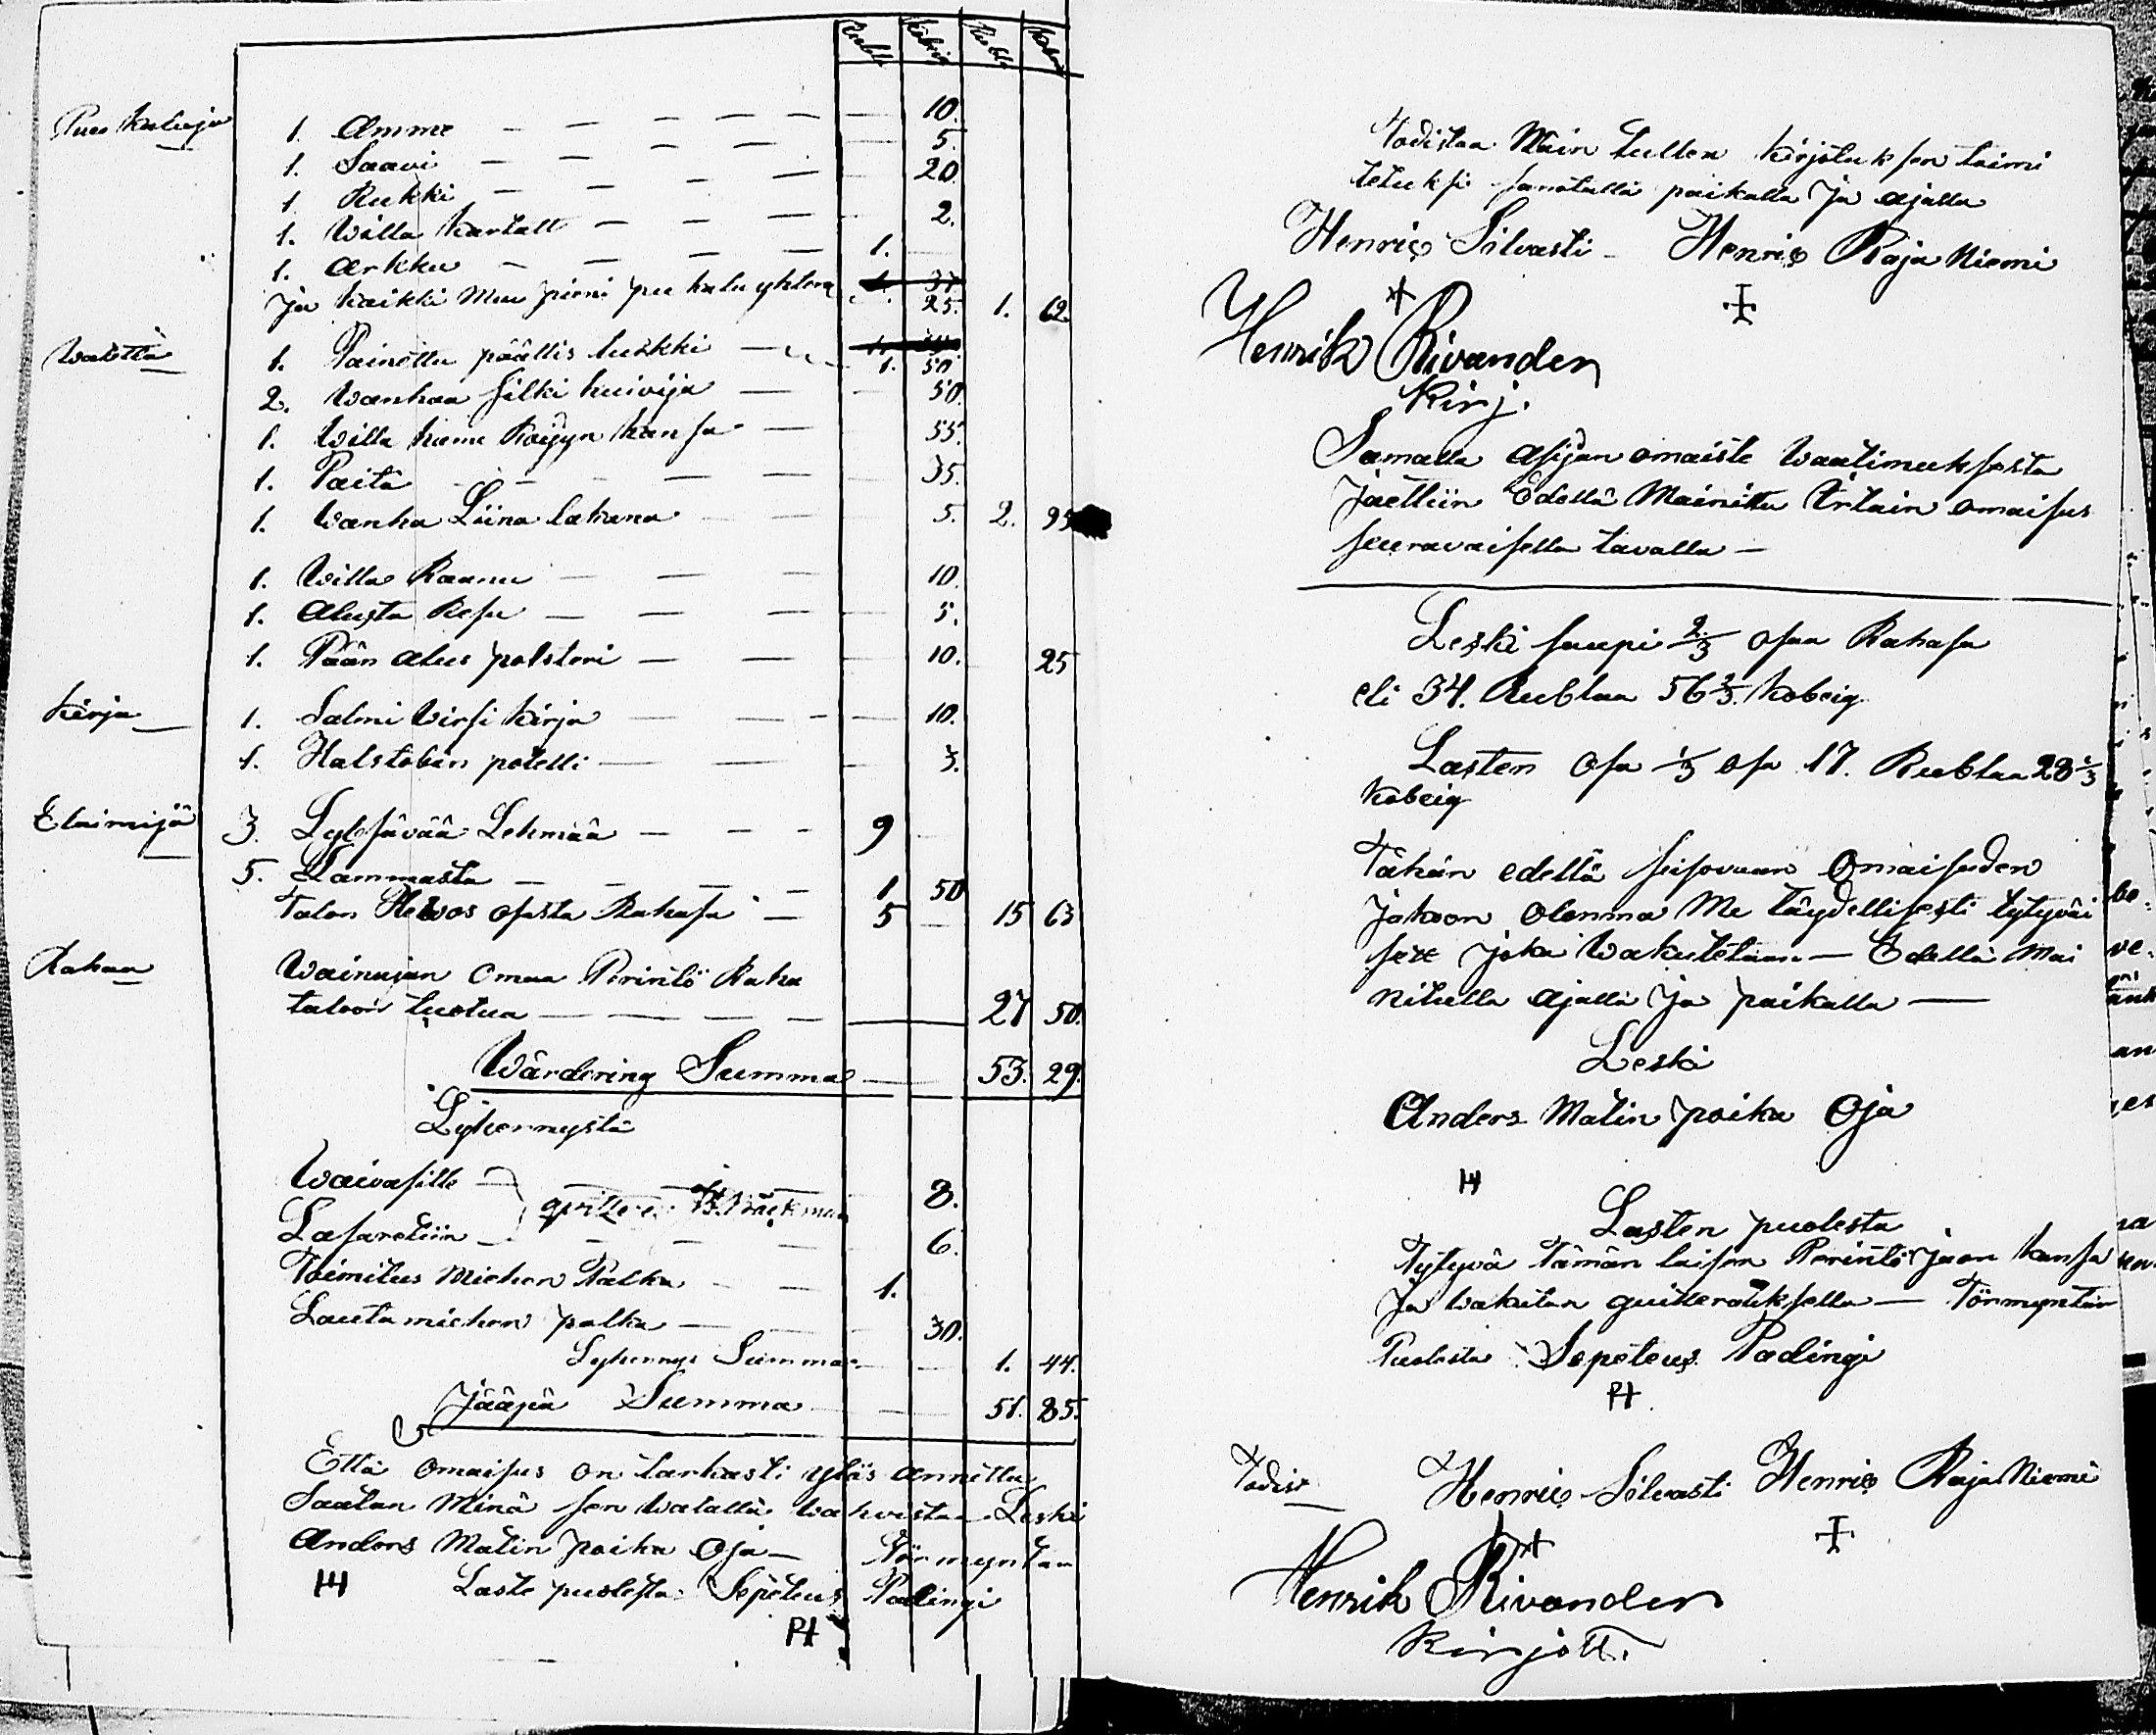 Rubla Kobeig Rubla Kobeig
Puu Kaluja
1. Amme — — — — — 10.
1. Saavi — — — — 5.
1. Rukki — — — — 20.
1. Willa Kartatt — — — 2.
1. Arkku — — — — 1. —
Ja Kaikki Muu pieni puu kalu yhtenä 25. 1. 62.
Waletta
1. Painettu päällis turkki — 1. 50
2. Wanhaa silki huivija — 50.
1. Willa hame Röijyn kansa — 55.
1. Paita — — — — 35.
1. Wanha Liina lakana — 5. 2. 95
1. Willa Raanu — — — 10.
1. Alusta Resu — — — 5.
1. Pään alus polsteri — — 10. 25
Kirja
1. Salmi Wirsi Kirja — — — 10.
1. Halstobin potelli — — — 3.
Elaimijä
3. Lybsävää Lehmää — — — 9
5. Lammasta — — — — 1 50
Talon Hewos osasta Rahasa — 5 — 15 63
Rahaa
Wainajan omaa Perintö Raha
taloon tuotua — — — — 27 50.
Wärdering Summa — 53. 29.
Lyhennystä
Waivasille — 8.
Lasaretiin — 6.
Toimitus Miehen Palka — 1.
Lautamiehen palka — 30.
Lyhennys Summa — 1. 44.
Jääpä Summa — 51. 85.
Että omaisus on tarkasti ylös annittu
Saatan Minä sen walalla wahvistaa Leski
Anders Matin poika Oja — Förmyntarin
Laste puolesta Sepeteus Padingi
Todistaa Näin tullen kirjotuksen toimi
tetuksi sanotulla paikalla Ja ajalla
Henric Silvasti — Henric Raja Niemi
Henrik Rivander
Kirj.
Samalla Asijan omaiste Waatimuksesta
Jaettiin Edellä Mainittu Irtain omaisus
seuravaisella tavalla —
Leski saapi 2/3 osaa Rahasa
eli 34. Rublaa 56 2/3 Kobeig
Lasten Osa 1/3 osa 17. Rublaa 28 1/3
Kobeig
Tähän edellä seisovaan Omaisuden
Jakoon Olemma Me täydellisesti tytyväi
set Joka Wakutetaan — Edellä Mai
nitulla ajalla Ja paikalla —
Leski
Anders Matin poika Oja
Lasten puolesta
Tytyvä Tämän laisen Perintö Jaon kansa
Ja Wakutan quitteratuksella — Förmyntär
Puolesta Sepeteus Padingi
Todist
Henric Silvasti Henric Raja Niemi
Henrik Rivander
Kirjott.